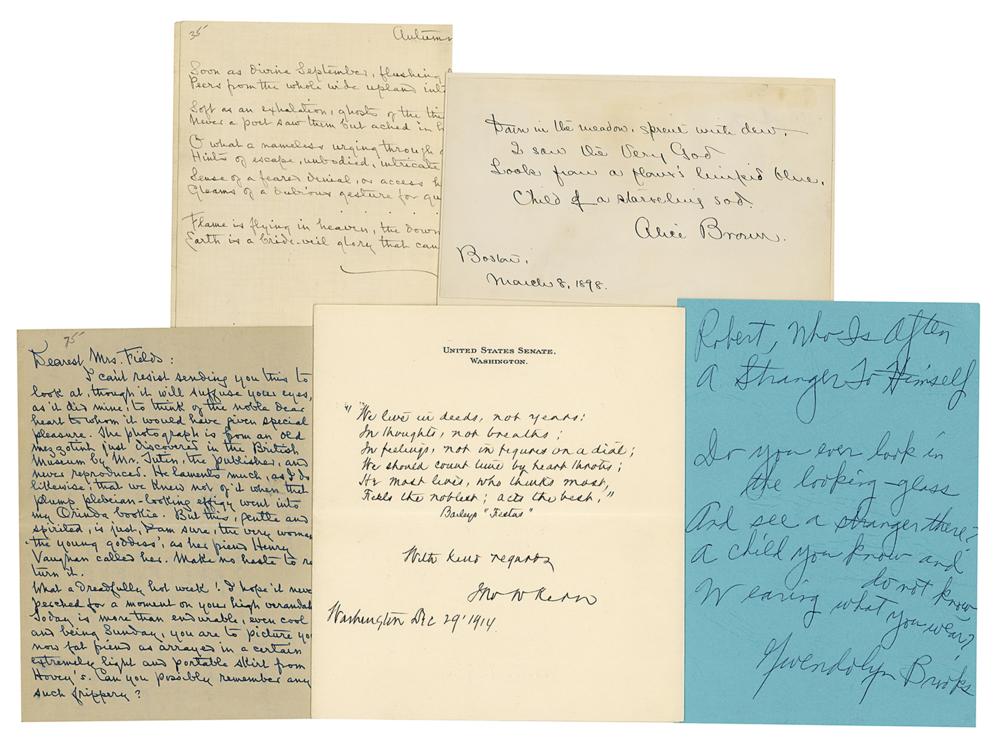 35
Autumn
Soon as divine September, flushing
Peers from the whole wide upland int
Soft as an exhalation, ghosts of the th
Never a poet saw them but ached in h
O what a nameless urging through
Hints of escape, unbodied, intricate
Sense of a feared denial, or access
Gleams of a dubious gesture for gu
Flame is flying in heaven, the down
Earth is a bride-veil glory that can
Dawn in the meadow, sprent with dew,
I saw the Very God
Look from a flower's limpid blue,
Child of a starveling sod.
Alice Brown.
Boston,
March 8, 1898.
75
Dearest Mrs. Fields:
I can't resist sending you this to
look at, though it will suffuse your eyes,
as it did mine; to think of the noble dear
heart to whom it would have given special
pleasure. The photograph is from an old
mezzotint, just discovered in the British
Museum by Mr. Tutin, the publisher, and
never reproduced. He laments much, as I do
likewise, that we knew not of it when that
plump plebeian-looking effigy went into
my Orinda bookie. But this, gentle and
spirited, is just, I am sure, the very woman
'the young goddess', as her friend Henry
Vaughan called her. Make no haste to re
turn it.
What a dreadfully hot week! I hope it never
perched for a moment on your high verandah
Today is more than endurable, even cool
and being Sunday, you are to picture yo
now fat friend as arrayed in a certain
extremely light and portable skirt from
Hovey's. Can you possibly remember any
such frippery?
UNITED STATES SENATE,
WASHINGTON.
"We live in deeds, not years:
In thoughts, not breaths;
In feelings, not in figures on a dial;
We should count time by heart throbs;
He most lives, who thinks most,
Feels the noblest; acts the best,"
Baileys "Festus"
With kind regards
Jno W Kern
Washington Dec 29' 1914.
Robert, Who Is Often
A Stranger To Himself
Do you ever look in
the looking-glass
And see a stranger there?
A child you know and
do not know
Wearing what you wear?
Gwendolyn Brooks